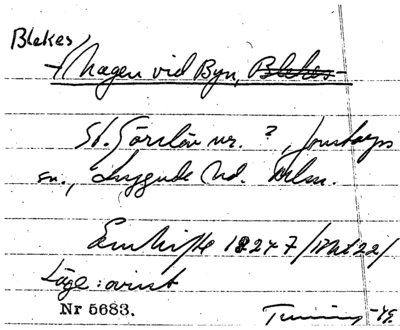 Blekes,
Hagen vid Byn, Blekes
St. Görslöv nr. ?, Jonstorps
sn., Luggude hd. Mlm.
Enskifte 1824 7
Läge: ovisst
Nr 5683.